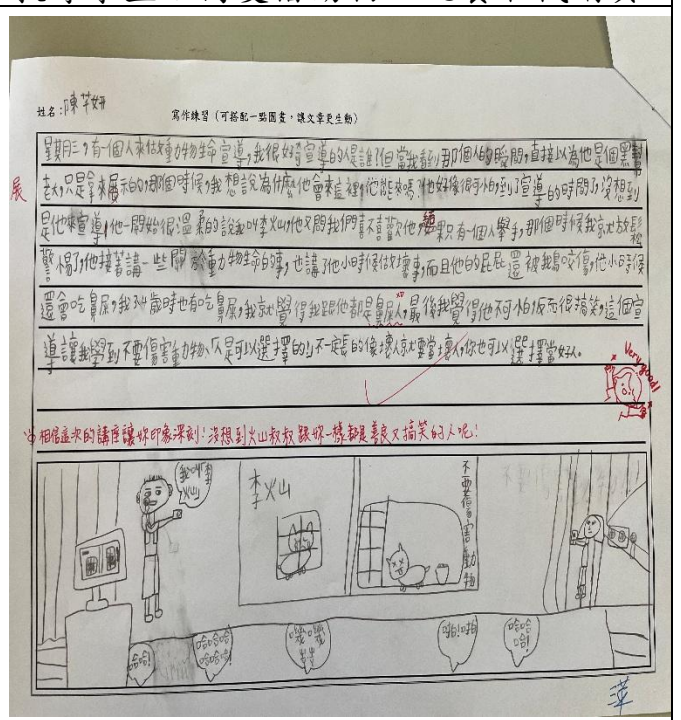 姓名:陳芊妍
寫作練習(可搭配一點圖畫,讓文章更生動)
星期三,有一個人來做動物生命宣導,我很好奇宣導的人是誰?但當我看到那個人的瞬間,直接以為他是個黑幫
老大,只是拿來展示的,那個時候,我想說為什麼他會來這裡,他能來嗎?他好像很可怕,到了宣導的時間了,沒想到
是他來宣導,他一開始很溫柔的說我叫李火山,他又問我們喜不喜歡他,結果只有一個人舉手,那個時候我就放鬆
警惕了,他接著講一些關於動物生命的事,也講了他小時候做壞事,而且他的屁屁還被鵝咬傷,他小時候
還會吃鼻屎,我3、4歲時也有吃鼻屎,我就覺得我跟他都是鼻屎人,最後我覺得他不可怕反而很搞笑,這個宣
導讓我學到不要傷害動物、「人是可以選擇的」不一定長的像壞人就要當壞人,你也可以選擇當好人。
展
Very good!
相信這次的講座讓妳印象深刻!沒想到火山叔叔跟妳一樣都是善良又搞笑的人呢!
我叫李
火山
李火山
不要傷害動物
哈哈!
哈哈哈
哈哈哈!
嘿嘿
啪!啪!
哈哈
哈!
萍